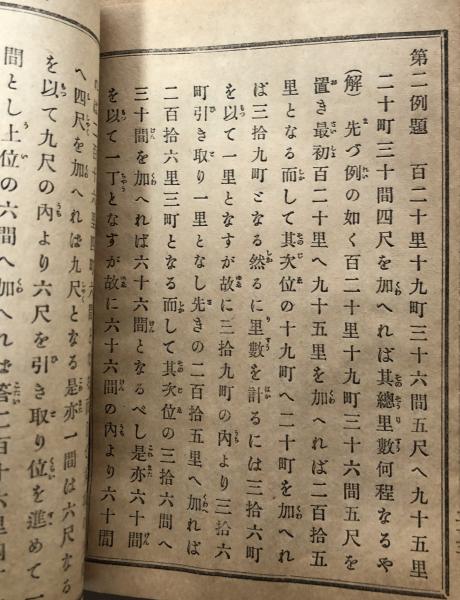 第二例題　百二十里十九町三十六間五尺へ九十五里
二十町三十間四尺を加へれば其總里數何程なるや
(解)　先づ例の如く百二十里十九町三十六間五尺を
置き最初百二十里へ九十五里を加へれば二百拾五
里となる而して其次位の十九町へ二十町を加へれ
ば三拾九町となる然るに里數を計るには三拾六町
を以て一里となすが故に三拾九町の內より三拾六
町引き取り一里となし先きの二百拾五里へ加れば
二百拾六里三町となる而して其次位の三拾六間へ
三十間を加へれば六十六間となるべし是亦六十間
を以て一丁となすが故に六十六間の內より六十間
へ四尺を加へれば九尺となる是亦一間は六尺なる
を以て九尺の內より六尺を引き取り位を進めて一
間とし上位の六間へ加へれば答二百十六里四